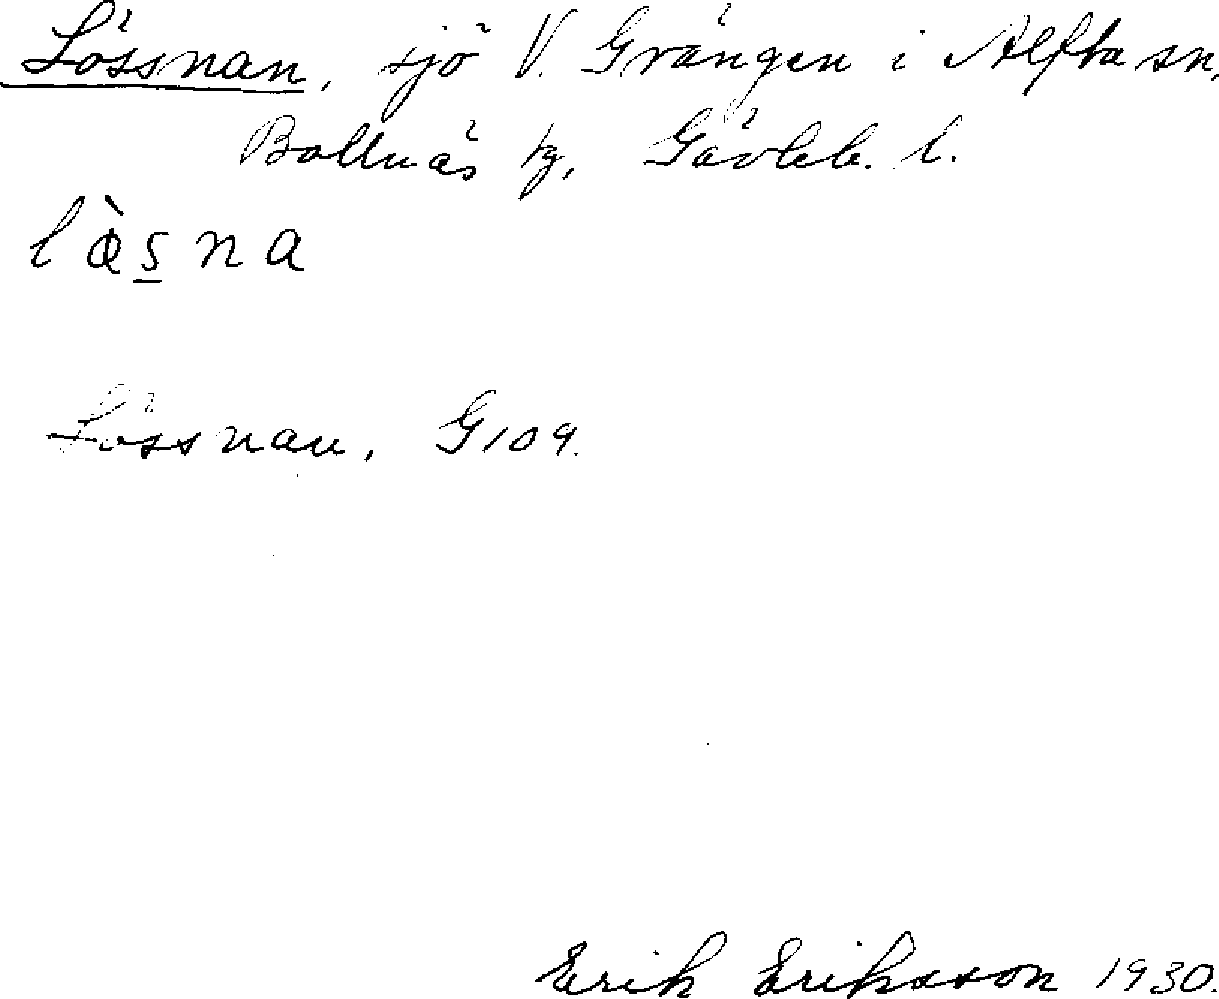 Lössnan, sjö V. Grängen i Alfta sn,
Bollnäs tg, Gävleb. l.
læ̀s̲na
Lössnan, G109.
Erik Eriksson 1930.